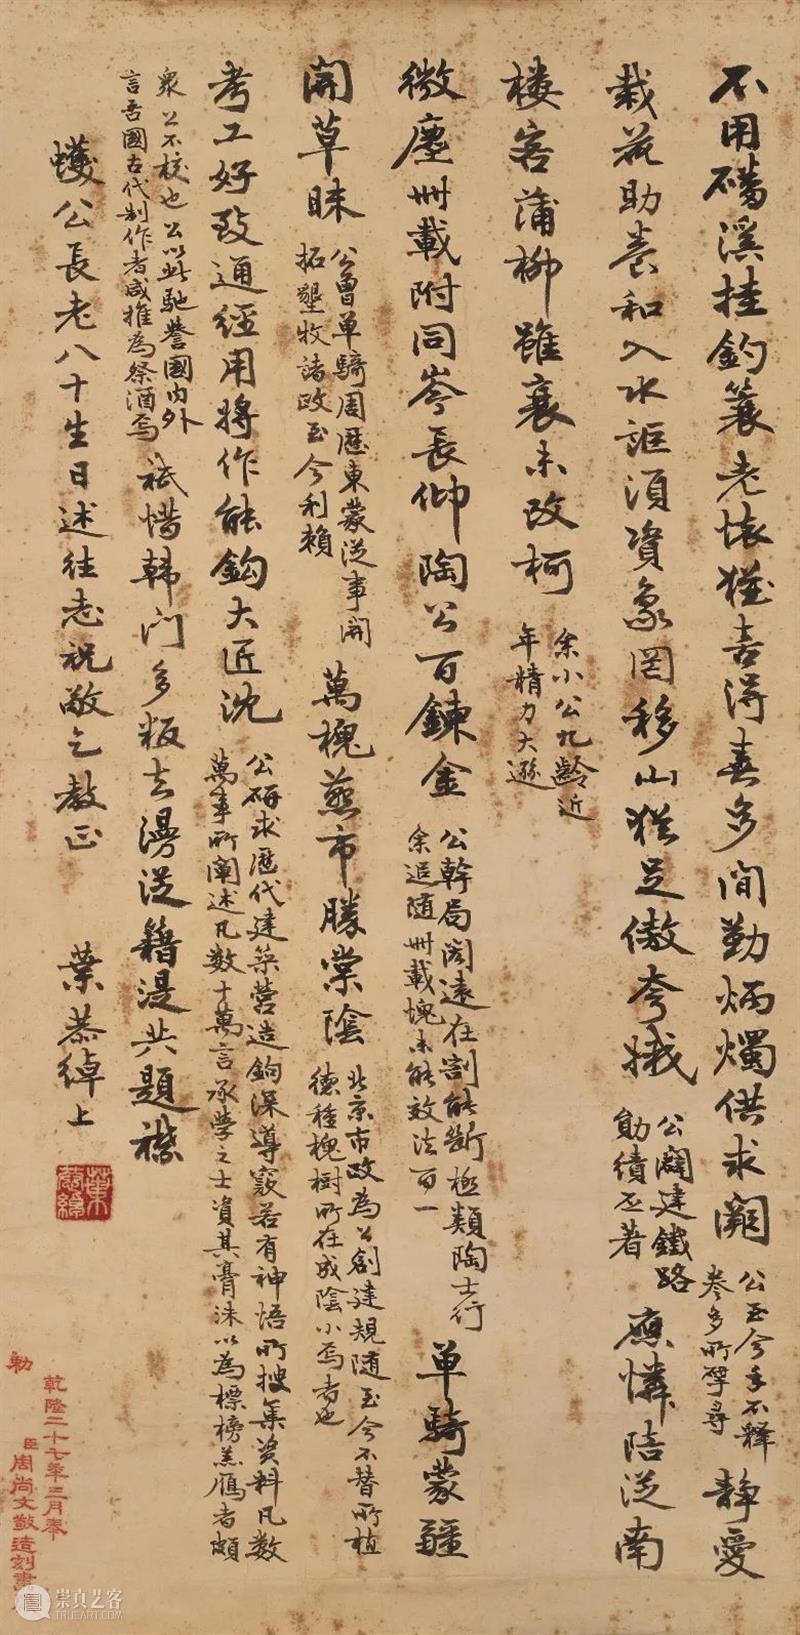 不用磻溪挂釣蓑老懷猶喜得春多閒勤炳燭供求闕
公至今手不釋
卷多所擘尋
靜愛
栽花助養和入水詎須資象罔移山猶足傲夸娥
公闢建鐵路
勛績丕著
應憐陪從南
楼客蒲柳雖衰未改柯
余小公九齡近
年精力大遜
微塵卅載附同岑長仰陶公百鍊金
公幹局閎遠在割能斷極類陶士行
余追随卅載愧未能效法百一
单騎蒙疆
開草昧
公曾单騎周歷東蒙從事開
拓墾牧諸政至今利賴
萬槐燕市勝棠陰
北京市政為公創建規随至今不替所植
德種槐樹所在成陰小焉者也
考工好致通經用將作能鈎大匠沈
公研求歷代建築營造鉤深導窾若有神悟所搜集資料凡數
萬事所闡述凡數十萬言承學之士資其膏沫以為標榜羔雁者頗
衆公不校也公以此馳譽國内外
言吾國古代制作者咸推為祭酒焉
祇惜韩门多叛去漫從籍湜共題襟
蠖公長老八十生日述往志祝敬乞教正 葉恭綽上
葉恭綽
乾隆二十七年三月奉
勅
臣周尚文敬造刻畫
崇真艺客